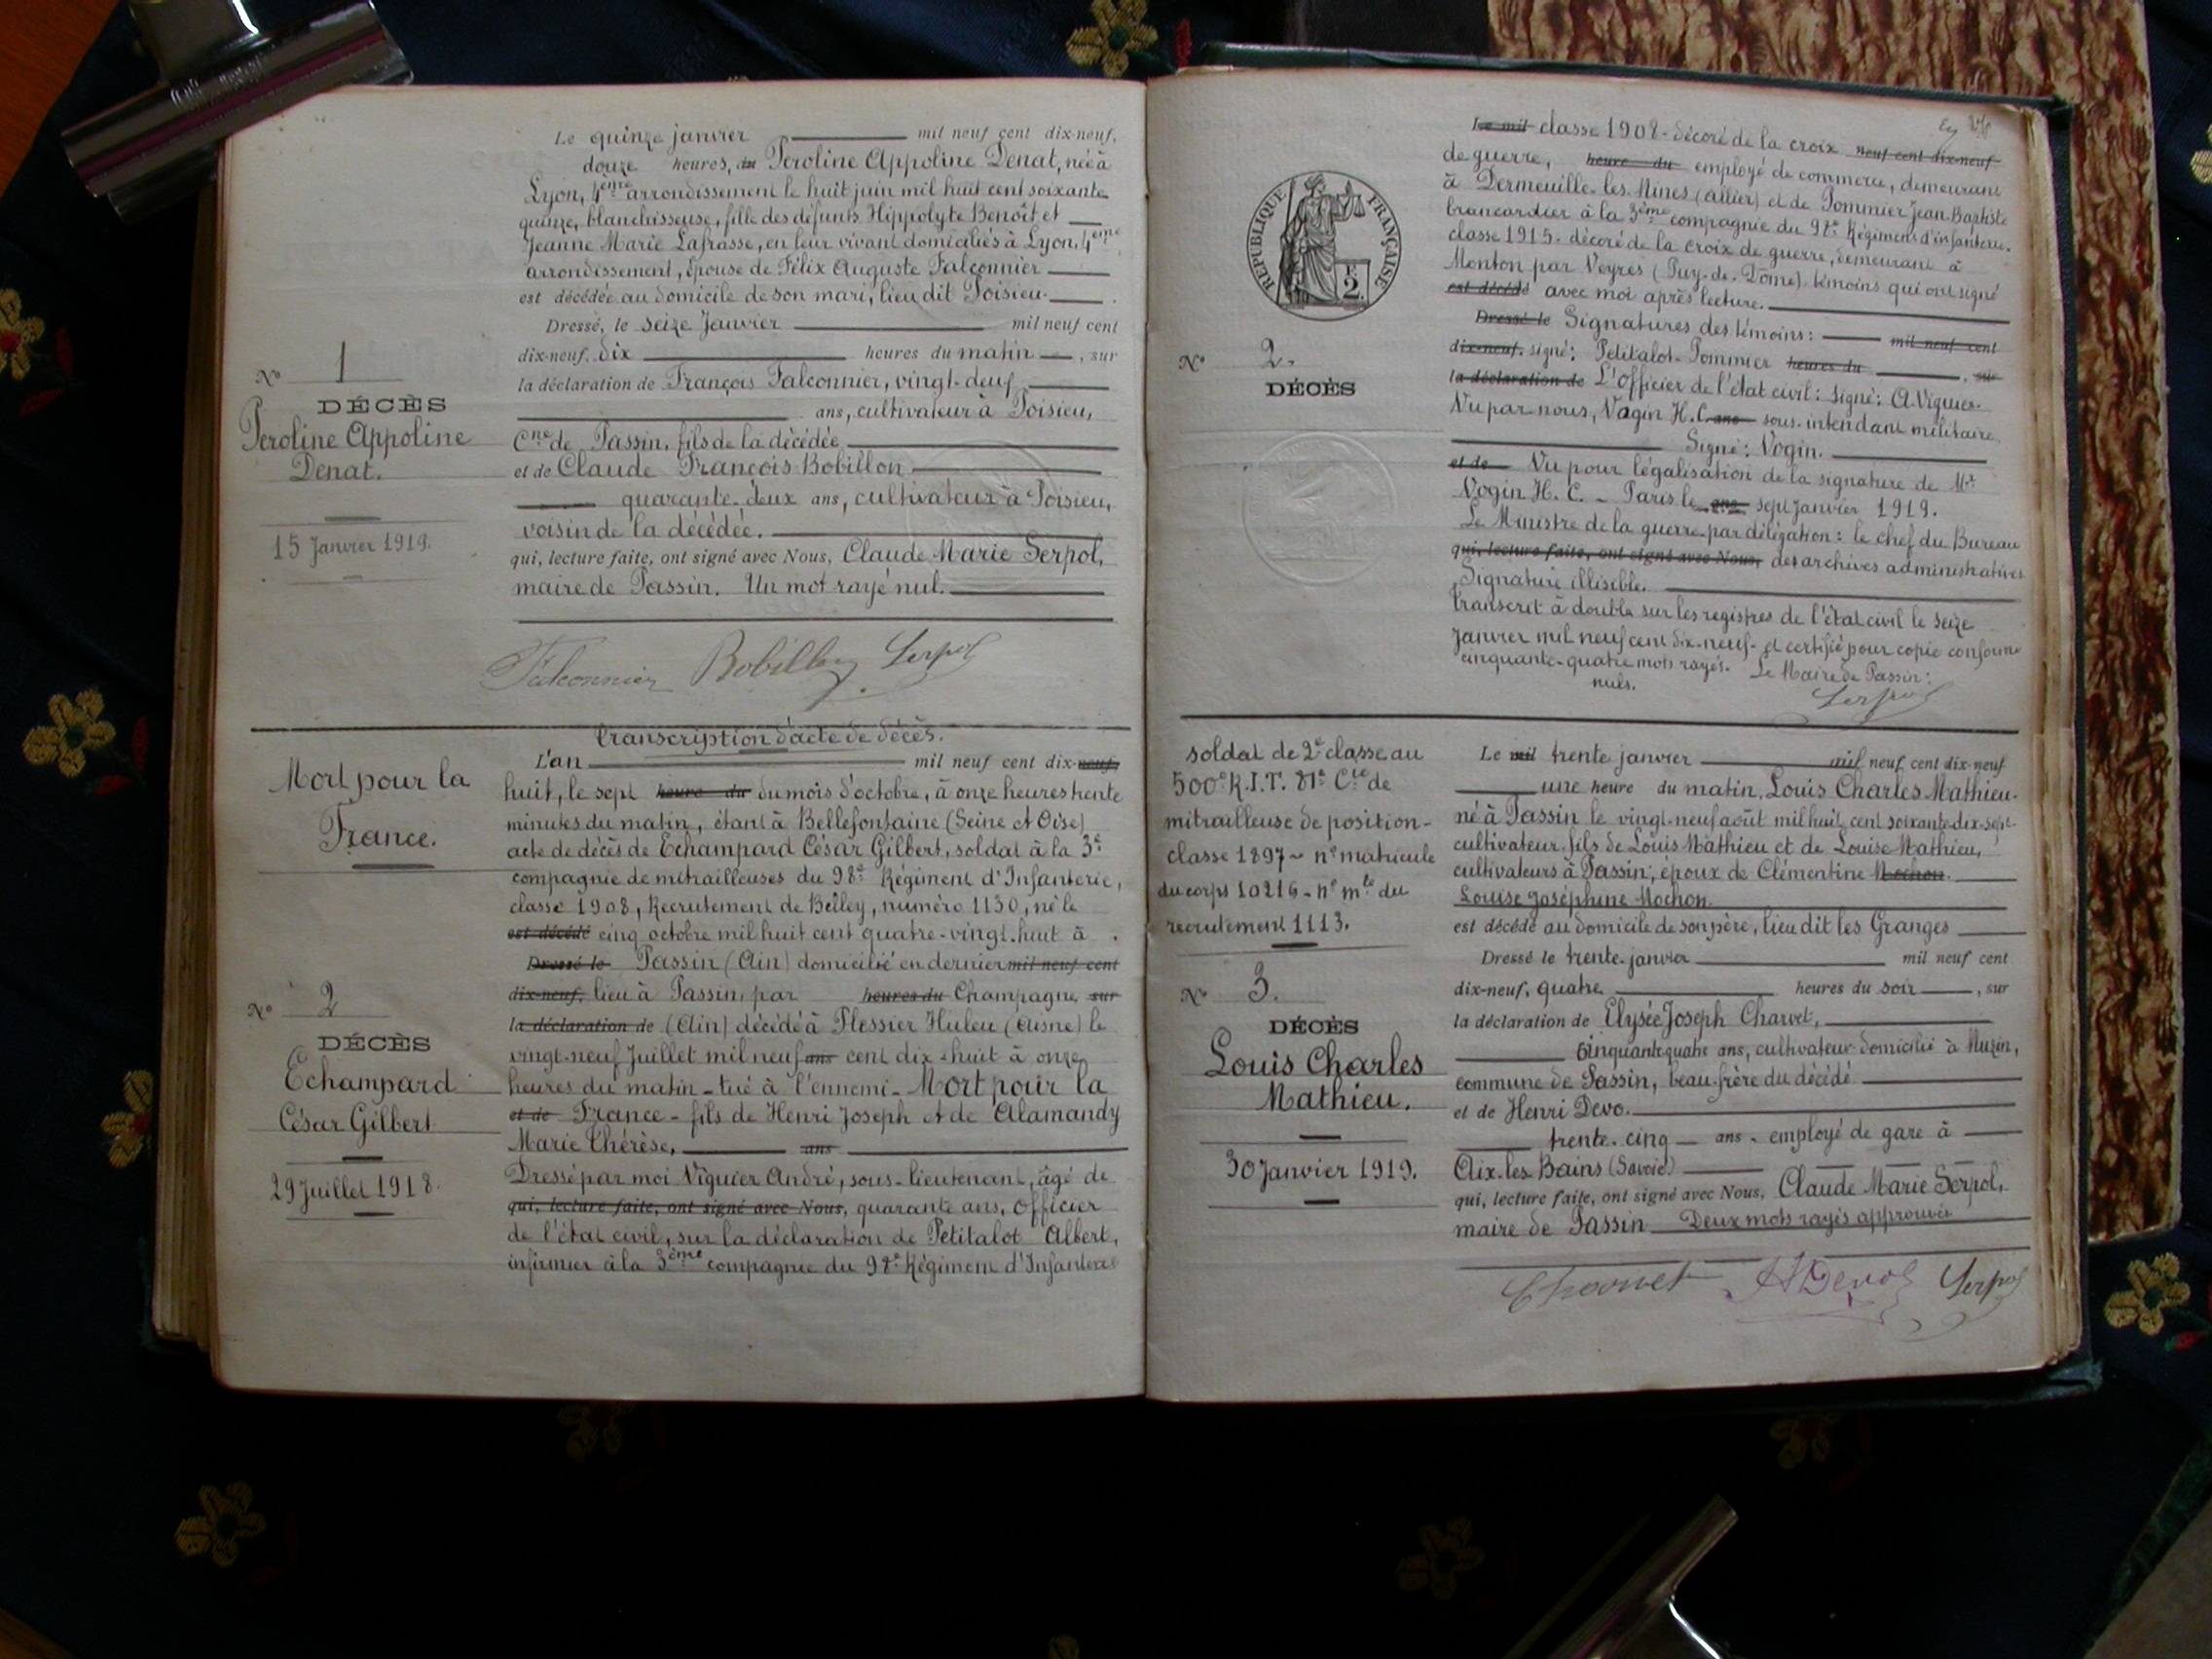 Le quinze janvier mil neuf cent dix-neuf,
douze heures, du Peroline Appoline Denat, née à
Lyon, 4ème arrondissement le huit juin mil huit cent soixante
quinze, blanchisseuse, fille des défunts Hippolyte Benoît et
Jeanne Marie Lafrasse, en leur vivant domiciliés à Lyon, 4ème
arrondissement, épouse de Félix Auguste Falconnier
est décédée au domicile de son mari, lieu dit Poisieu.
Dressé, le seize Janvier mil neuf cent
dix-neuf, dix heures du matin, sur
la déclaration de François Falconnier, vingt-deux
ans, cultivateur à Poisieu,
Cne de Passin, fils de la décédée
et de Claude François Bobillon
quarante-deux ans, cultivateur à Poisieu,
voisin de la décédée.
qui, lecture faite, ont signé avec Nous, Claude Marie Serpol,
maire de Passin. Un mot rayé nul.
Falconnier Bobillon Serpol
N° 1
DÉCÈS
Peroline Appoline
Denat.
15 Janvier 1919.
Transcription d'acte de décès.
Mort pour la
France.
L'an mil neuf cent dix-neuf,
huit, le sept heure du du mois d'octobre, à onze heures trente
minutes du matin, étant à Bellefontaine (Seine et Oise)
acte de décès de Echampard César Gilbert, soldat à la 3e
compagnie de mitrailleuses du 98e Régiment d'Infanterie,
classe 1908, Recrutement de Belley, numéro 1130, né le
est décédé cinq octobre mil huit cent quatre-vingt-huit à
Dressé le Passin (Ain) domicilié en dernier mil neuf cent
dix-neuf, lieu à Passin, par heures du Champagne, sur
la déclaration de (Ain) décédé à Plessier Huleu (Aisne) le
vingt-neuf Juillet mil neuf ans cent dix-huit à onze
heures du matin - tué à l'ennemi - Mort pour la
et de France - fils de Henri Joseph et de Alamandy
Marie Thérèse, ans
Dressé par moi Viguier André, sous-lieutenant, âgé de
qui, lecture faite, ont signé avec Nous, quarante ans, Officier
de l'état civil, sur la déclaration de Petitalot Albert,
infirmier à la 3ème compagnie du 98e Régiment d'Infanterie
N° 2
DÉCÈS
Echampard
César Gilbert
29 Juillet 1918.
Le mil classe 1908 - décoré de la croix neuf cent dix-neuf
de guerre, heure du employé de commerce, demeurant
à Dermeuille-les-Mines (Allier) et de Pommier Jean-Baptiste
brancardier à la 3ème compagnie du 98e Régiment d'infanterie.
classe 1915. décoré de la croix de guerre, demeurant à
Monton par Veyres (Puy-de-Dôme). témoins qui ont signé
est décédé avec moi après lecture.
Dressé le Signatures des témoins: mil neuf cent
dix-neuf, signé: Petitalot-Pommier heures du, sur
la déclaration de L'officier de l'état civil: signé: A. Viguier.
Vu par nous, Vogin H.C. ans sous-intendant militaire,
Signé: Vogin.
et de Vu pour légalisation de la signature de Mr
Vogin H. C. - Paris le ans sept Janvier 1919.
Le Ministre de la guerre par délégation: le chef du Bureau
qui, lecture faite, ont signé avec Nous, des archives administratives
Signature illisible.
transcrit à double sur les registres de l'état civil le seize
Janvier mil neuf cent dix-neuf - et certifié pour copie conforme
cinquante-quatre mots rayés. Le Maire de Passin:
nuls.
Serpol
RÉPUBLIQUE FRANÇAISE
2
N° 2.
DÉCÈS
soldat de 2e classe au
500e R.I.T. 81e Cie de
mitrailleuse de position -
classe 1897 - n° matricule
du corps 10216 - n° mle du
recrutement 1113.
N° 3.
DÉCÈS
Louis Charles
Mathieu.
30 Janvier 1919.
Le mil trente janvier mil neuf cent dix-neuf
une heure du matin, Louis Charles Mathieu
né à Passin le vingt-neuf août mil huit cent soixante-dix-sept
cultivateur, fils de Louis Mathieu et de Louise Mathieu,
cultivateurs à Passin, époux de Clémentine Mochon.
Louise Joséphine Mochon.
est décédé au domicile de son père, lieu dit les Granges
Dressé le trente-janvier mil neuf cent
dix-neuf, quatre heures du soir, sur
la déclaration de Elysée Joseph Charvet,
cinquante-quatre ans, cultivateur domicilié à Muzin,
commune de Passin, beau-frère du décédé
et de Henri Devo.
trente-cinq ans - employé de gare à
Aix-les-Bains (Savoie)
qui, lecture faite, ont signé avec Nous, Claude Marie Serpol,
maire de Passin Deux mots rayés approuvés
Charvet H Devos Serpol